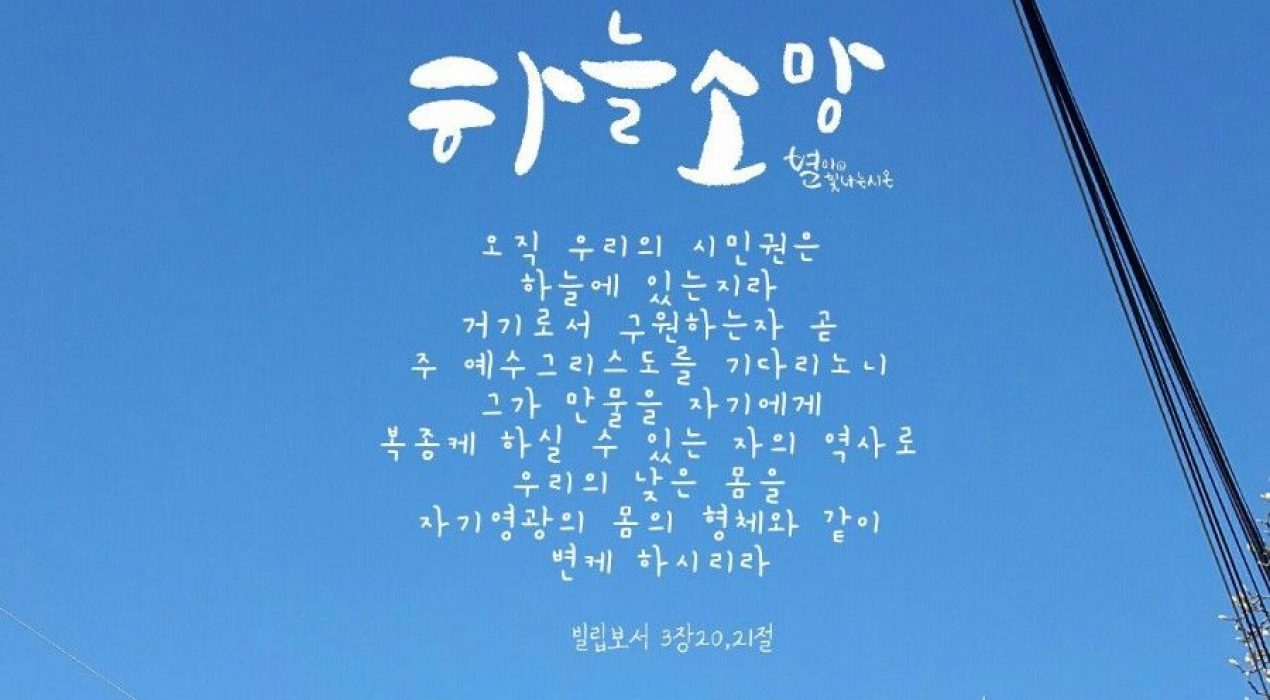 하늘소망
별이
꽃나는시온
오직 우리의 시민권은
하늘에 있는지라
거기로서 구원하는자 곧
주 예수그리스도를 기다리노니
그가 만물을 자기에게
복종케 하실 수 있는 자의 역사로
우리의 낮은 몸을
자기영광의 몸의 형체와 같이
변케 하시리라
빌립보서 3장20,21절